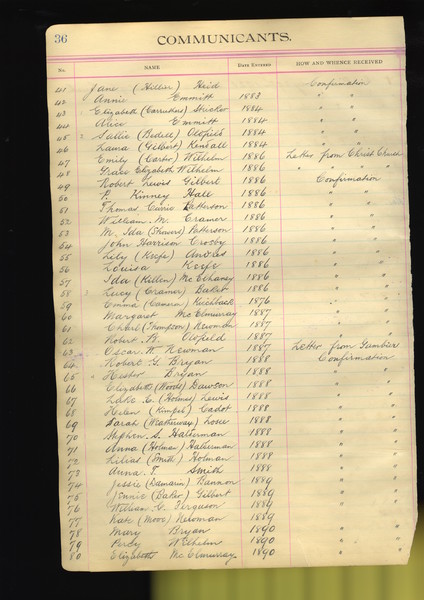 36 COMMUNICANTS.
No. NAME DATE ENTERED HOW AND WHENCE RECEIVED
41 Jane (Hillier) Heid Confirmation
42 Annie Emmitt 1883 " "
43 Elizabeth (Carruthers) Stucker 1884 " "
44 Alice Emmitt 1884 " "
45 Sallie (Bedell) Oldfield 1884 " "
46 Laura (Gilbert) Kendall 1884 " "
47 Emily (Carter) Wilhelm 1886 Letter from Christ Church
48 Grace Elizabeth Wilhelm 1886 " " "
49 Robert Lewis Gilbert 1886 Confirmation
50 P. Kinney Hall 1886 "
51 Thomas Currie Patterson 1886 "
52 William M. Cramer 1886 "
53 M. Ida (Shawers) Patterson 1886 "
54 John Harrison Crosby 1886 "
55 Lily (Keefe) 1886 "
56 Louisa Keefe 1886 "
57 Ida (Killen) McElhaney 1886 "
58 Lucy (Cramer) Baker 1886 "
59 Emma (Cameron) 1876 "
60 Margaret McElmurray 1887 "
61 (Thompson) Newman 1887 "
62 Robert B. Oldfield 1887 "
63 Oscar W. Newman 1887 Letter from Gambier
64 Robert G. Bryan 1888 Confirmation
65 Hester Bryan 1888 "
66 Elizabeth (Woods) Dawson 1888 "
67 E. (Holmes) Lewis 1888 "
68 Helen (Kimple) Cadot 1888 "
69 Sarah (Weatherway) 1888 "
70 Stephen S. Halterman 1888 "
71 Anna (Holman) Halterman 1888 "
72 Lilias (Smith) Holman 1888 "
73 Anna T. Smith 1888 "
74 Jessie (Damarin) Bannon 1889 "
75 Jennie (Baker) Gilbert 1889 "
76 William G. Ferguson 1889 "
77 Kate (Moore) Newman 1889 "
78 Mary Bryan 1890 "
79 Percy Wilhelm 1890 "
80 Elizabeth McElmurray 1890 "